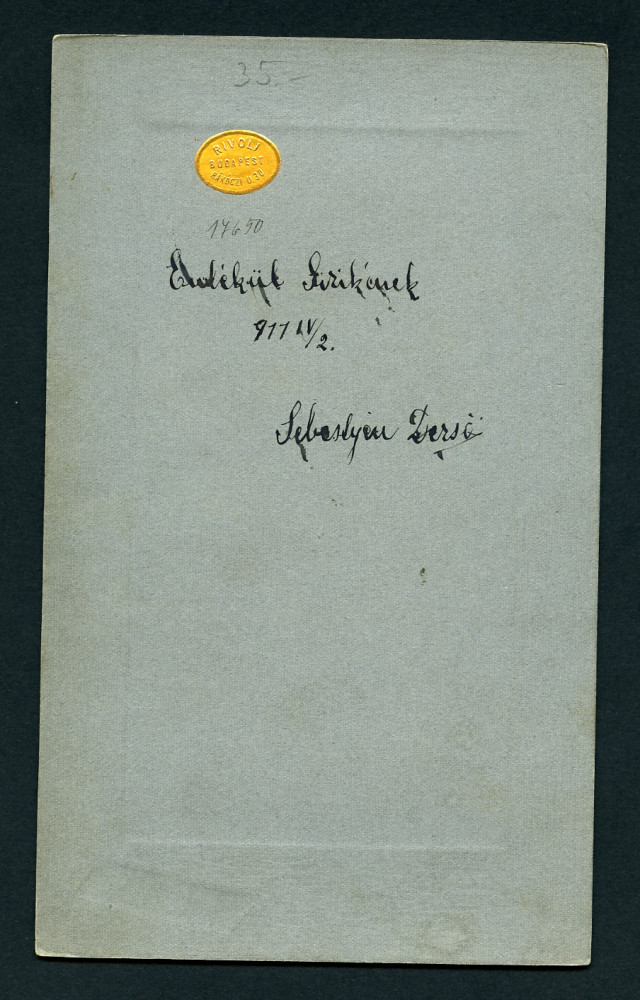 35.-
RIVOLI
BUDAPEST
RÁKÓCZI U.30
17650
Emlékül Stirikének
911 IV/2.
Sebestyén Dersö